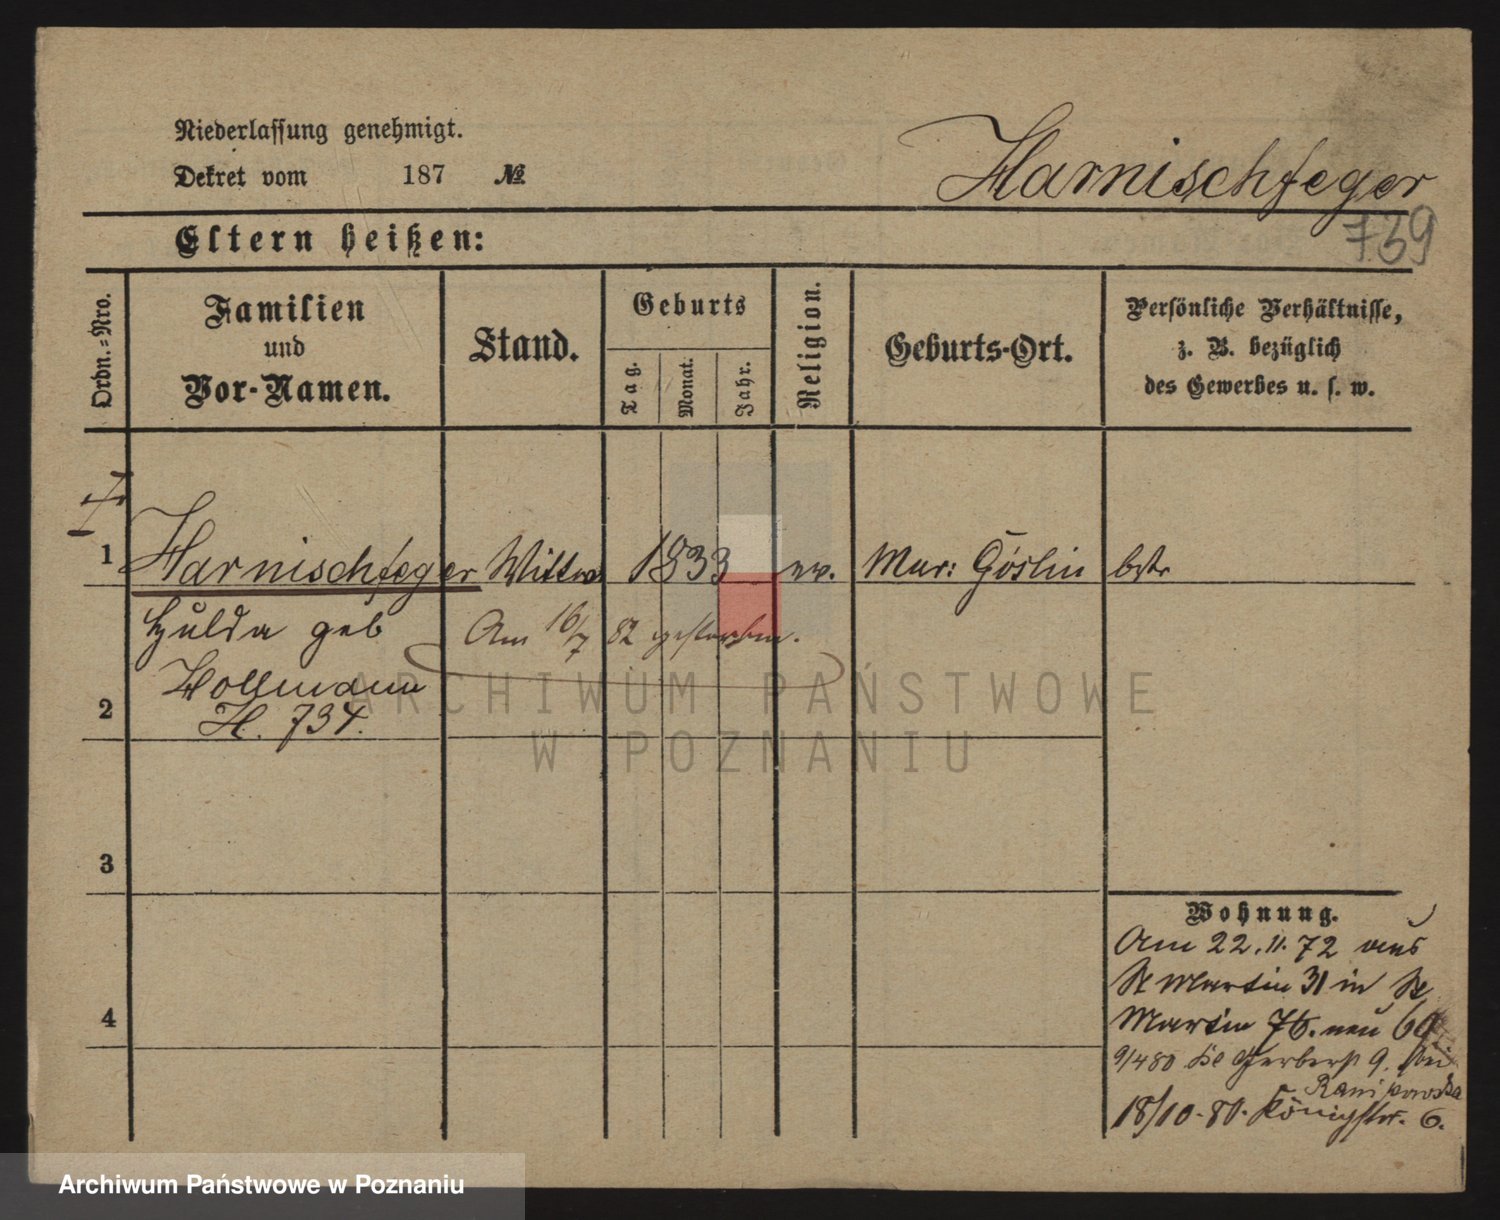 Niederlassung genehmigt.
Dekret vom 187 №
Harnischfeger
739
Eltern heißen:
Ordn.-Nro.
Familien
und
Vor-Namen.
Stand.
Geburts
Tag.
Monat.
Jahr.
Religion.
Geburts-Ort.
Persönliche Verhältnisse,
z. B. bezüglich
des Gewerbes u. s. w.
1 Harnischfeger Wittwe 1833 ev. Mur: Goslin
Hulda geb
Am 16/7 82 gestorben.
2 Wollmann
H. 734.
3
4
Wohnung.
Am 22.11.72 aus
St Martin 31 in St
Martin 76. neu 60
9/4 80 Kl Gerberst 9. bei
18/10. 80. Königstr. 6.
ARCHIWUM PAŃSTWOWE
W POZNANIU
Archiwum Państwowe w Poznaniu